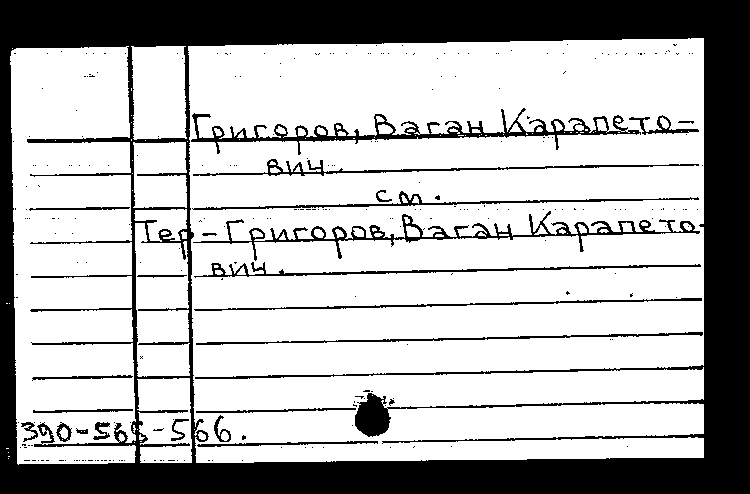 Григоров, Ваган Карапето-
вич.
см.
Тер-Григоров, Ваган Карапето-
вич.
390-565-566.